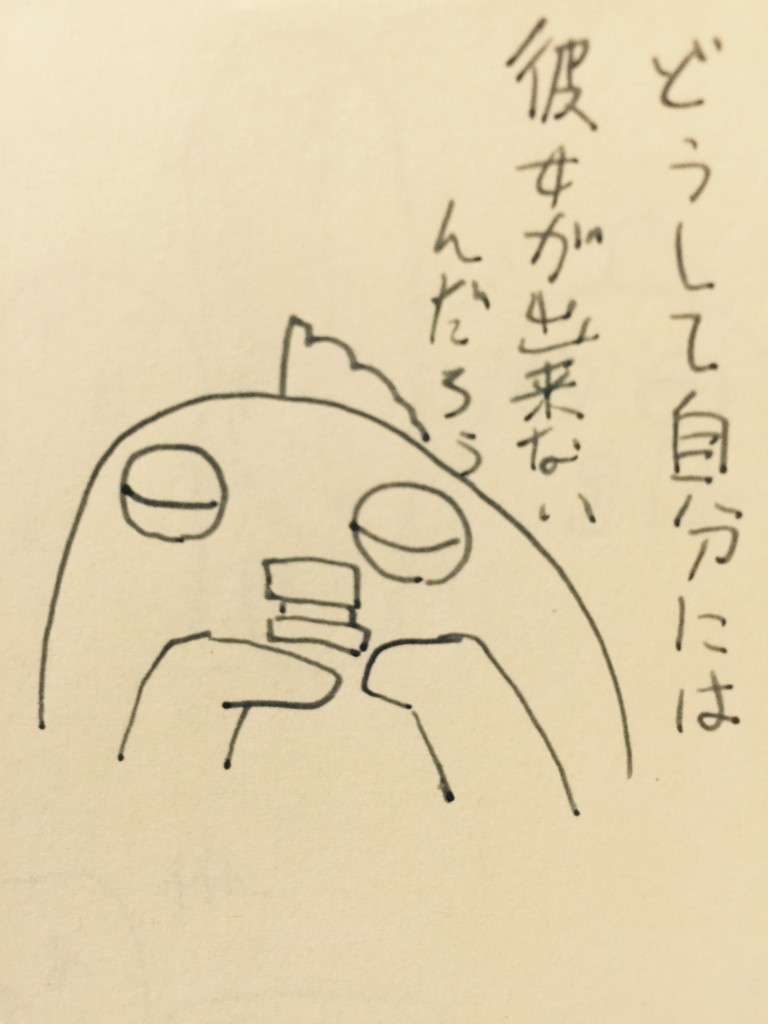 どうして自分には
彼女が出来ない
んだろう